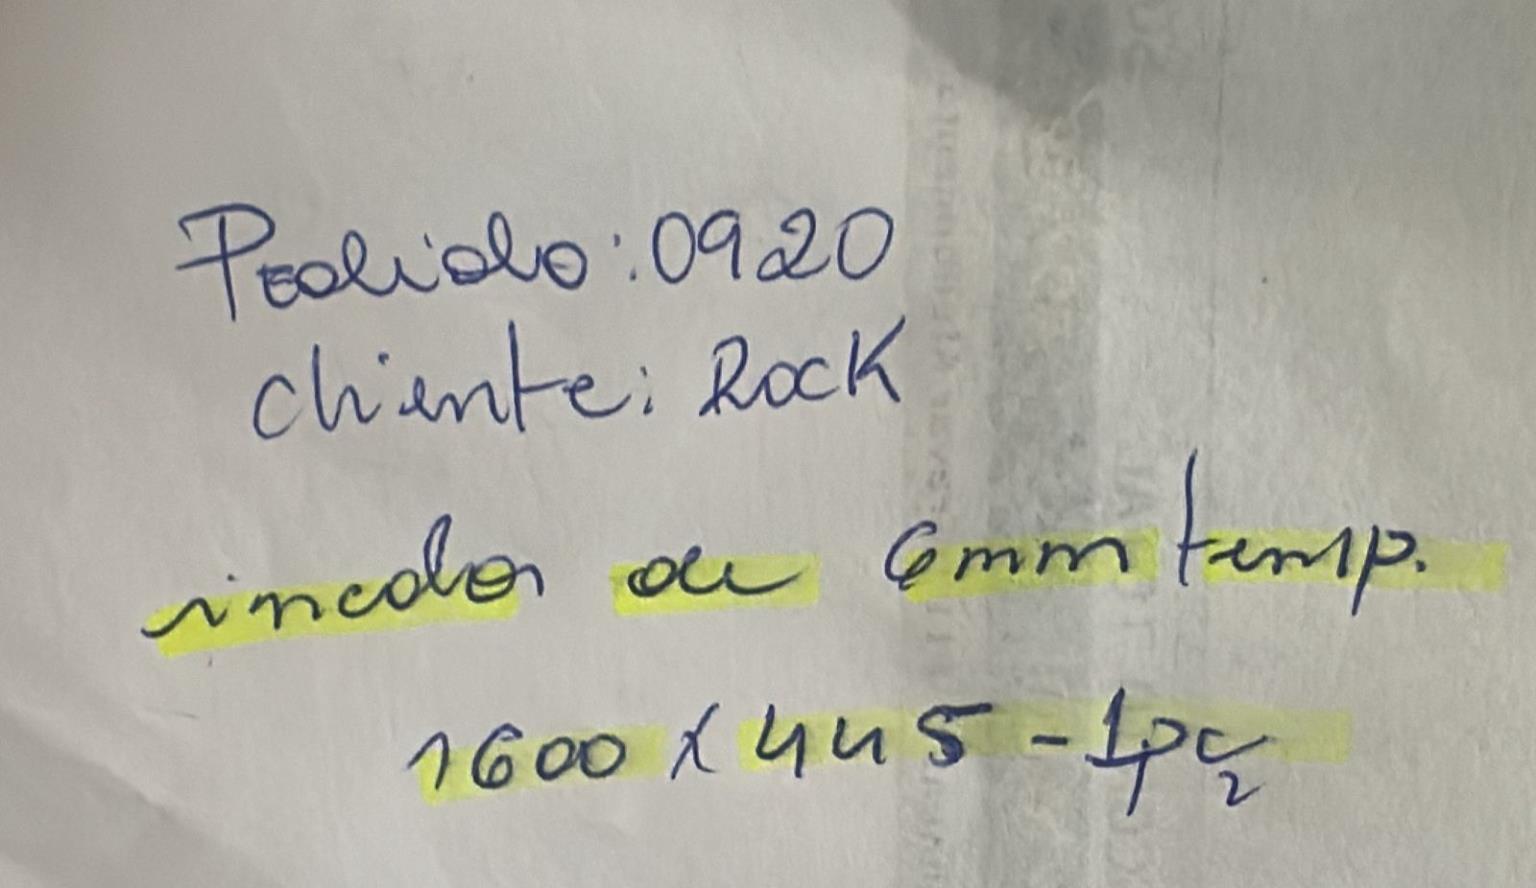 Pedido: 0920
Cliente: Rock
incolor de 6mm temp.
1600 x 445 - 1pç